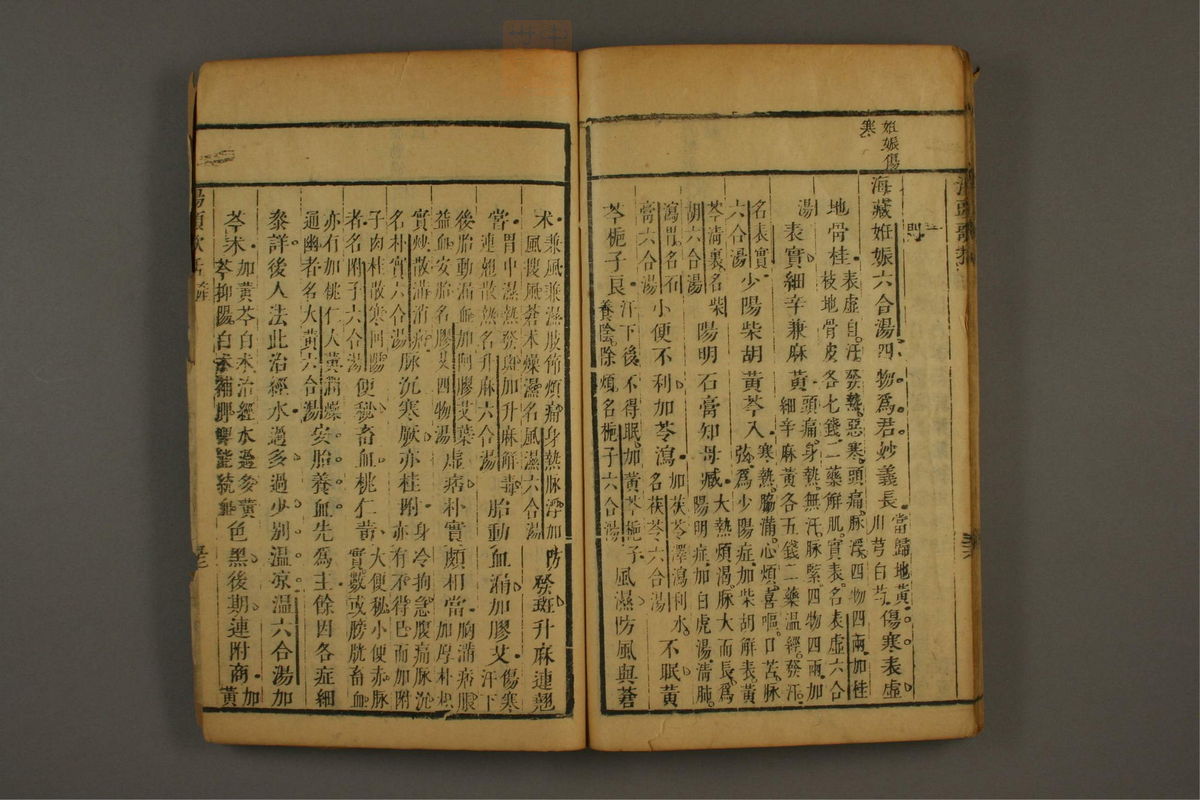 妊娠傷寒
海藏妊娠六合湯四物為君妙義長當歸地黃川芎白芍傷寒表虛
地骨桂表虛自汗發熱惡寒頭痛脉浮四物四兩加桂枝地骨皮各七錢二藥解肌實表名表虛六合
湯表實細辛兼麻黃頭痛身熱無汗脉緊四物四兩加細辛麻黃各五錢二藥温經發汗
名表實六合湯少陽柴胡黃芩入寒熱脇滿心煩喜嘔口苦脉弦為少陽症加柴胡解表黃
芩清裏名柴胡六合湯陽明石膏知母臧大熱煩渴脉大而長為陽明症加白虎湯清肺
瀉胃名石膏六合湯小便不利加苓瀉加茯苓澤瀉利水名茯苓六合湯不眠黃
芩梔子良汗下後不得眠加黃芩梔子養陰除煩名梔子六合湯風濕防風與蒼
术兼風兼濕肢節煩痛身熱脉浮加防風搜風蒼术燥濕名風濕六合湯發斑升麻連翹
當胃中濕熱發斑加升麻解毒連翹散熱名升麻六合湯胎動血漏加膠艾傷寒汗下
後胎動漏血加阿膠艾葉益血安胎名膠艾四物湯虛痞朴實頗相當胸滿痞脹加厚朴枳
實炒散滿消痞名朴實六合湯脉沉寒厥亦桂附身冷拘急腹痛脉沉亦有不得已而加附
子肉桂散寒回陽者名附子六合湯便秘畜血桃仁黃大便秘小便赤脉實數或膀胱畜血
亦有加桃仁大黃潤燥通幽者名大黃六合湯安胎養血先為主餘因各症細
參詳後人法此治經水過多過少別温凉温六合湯加
芩术加黃芩白术治經水過多黃芩抑陽白术補脾脾能統血色黑後期連附商加黃